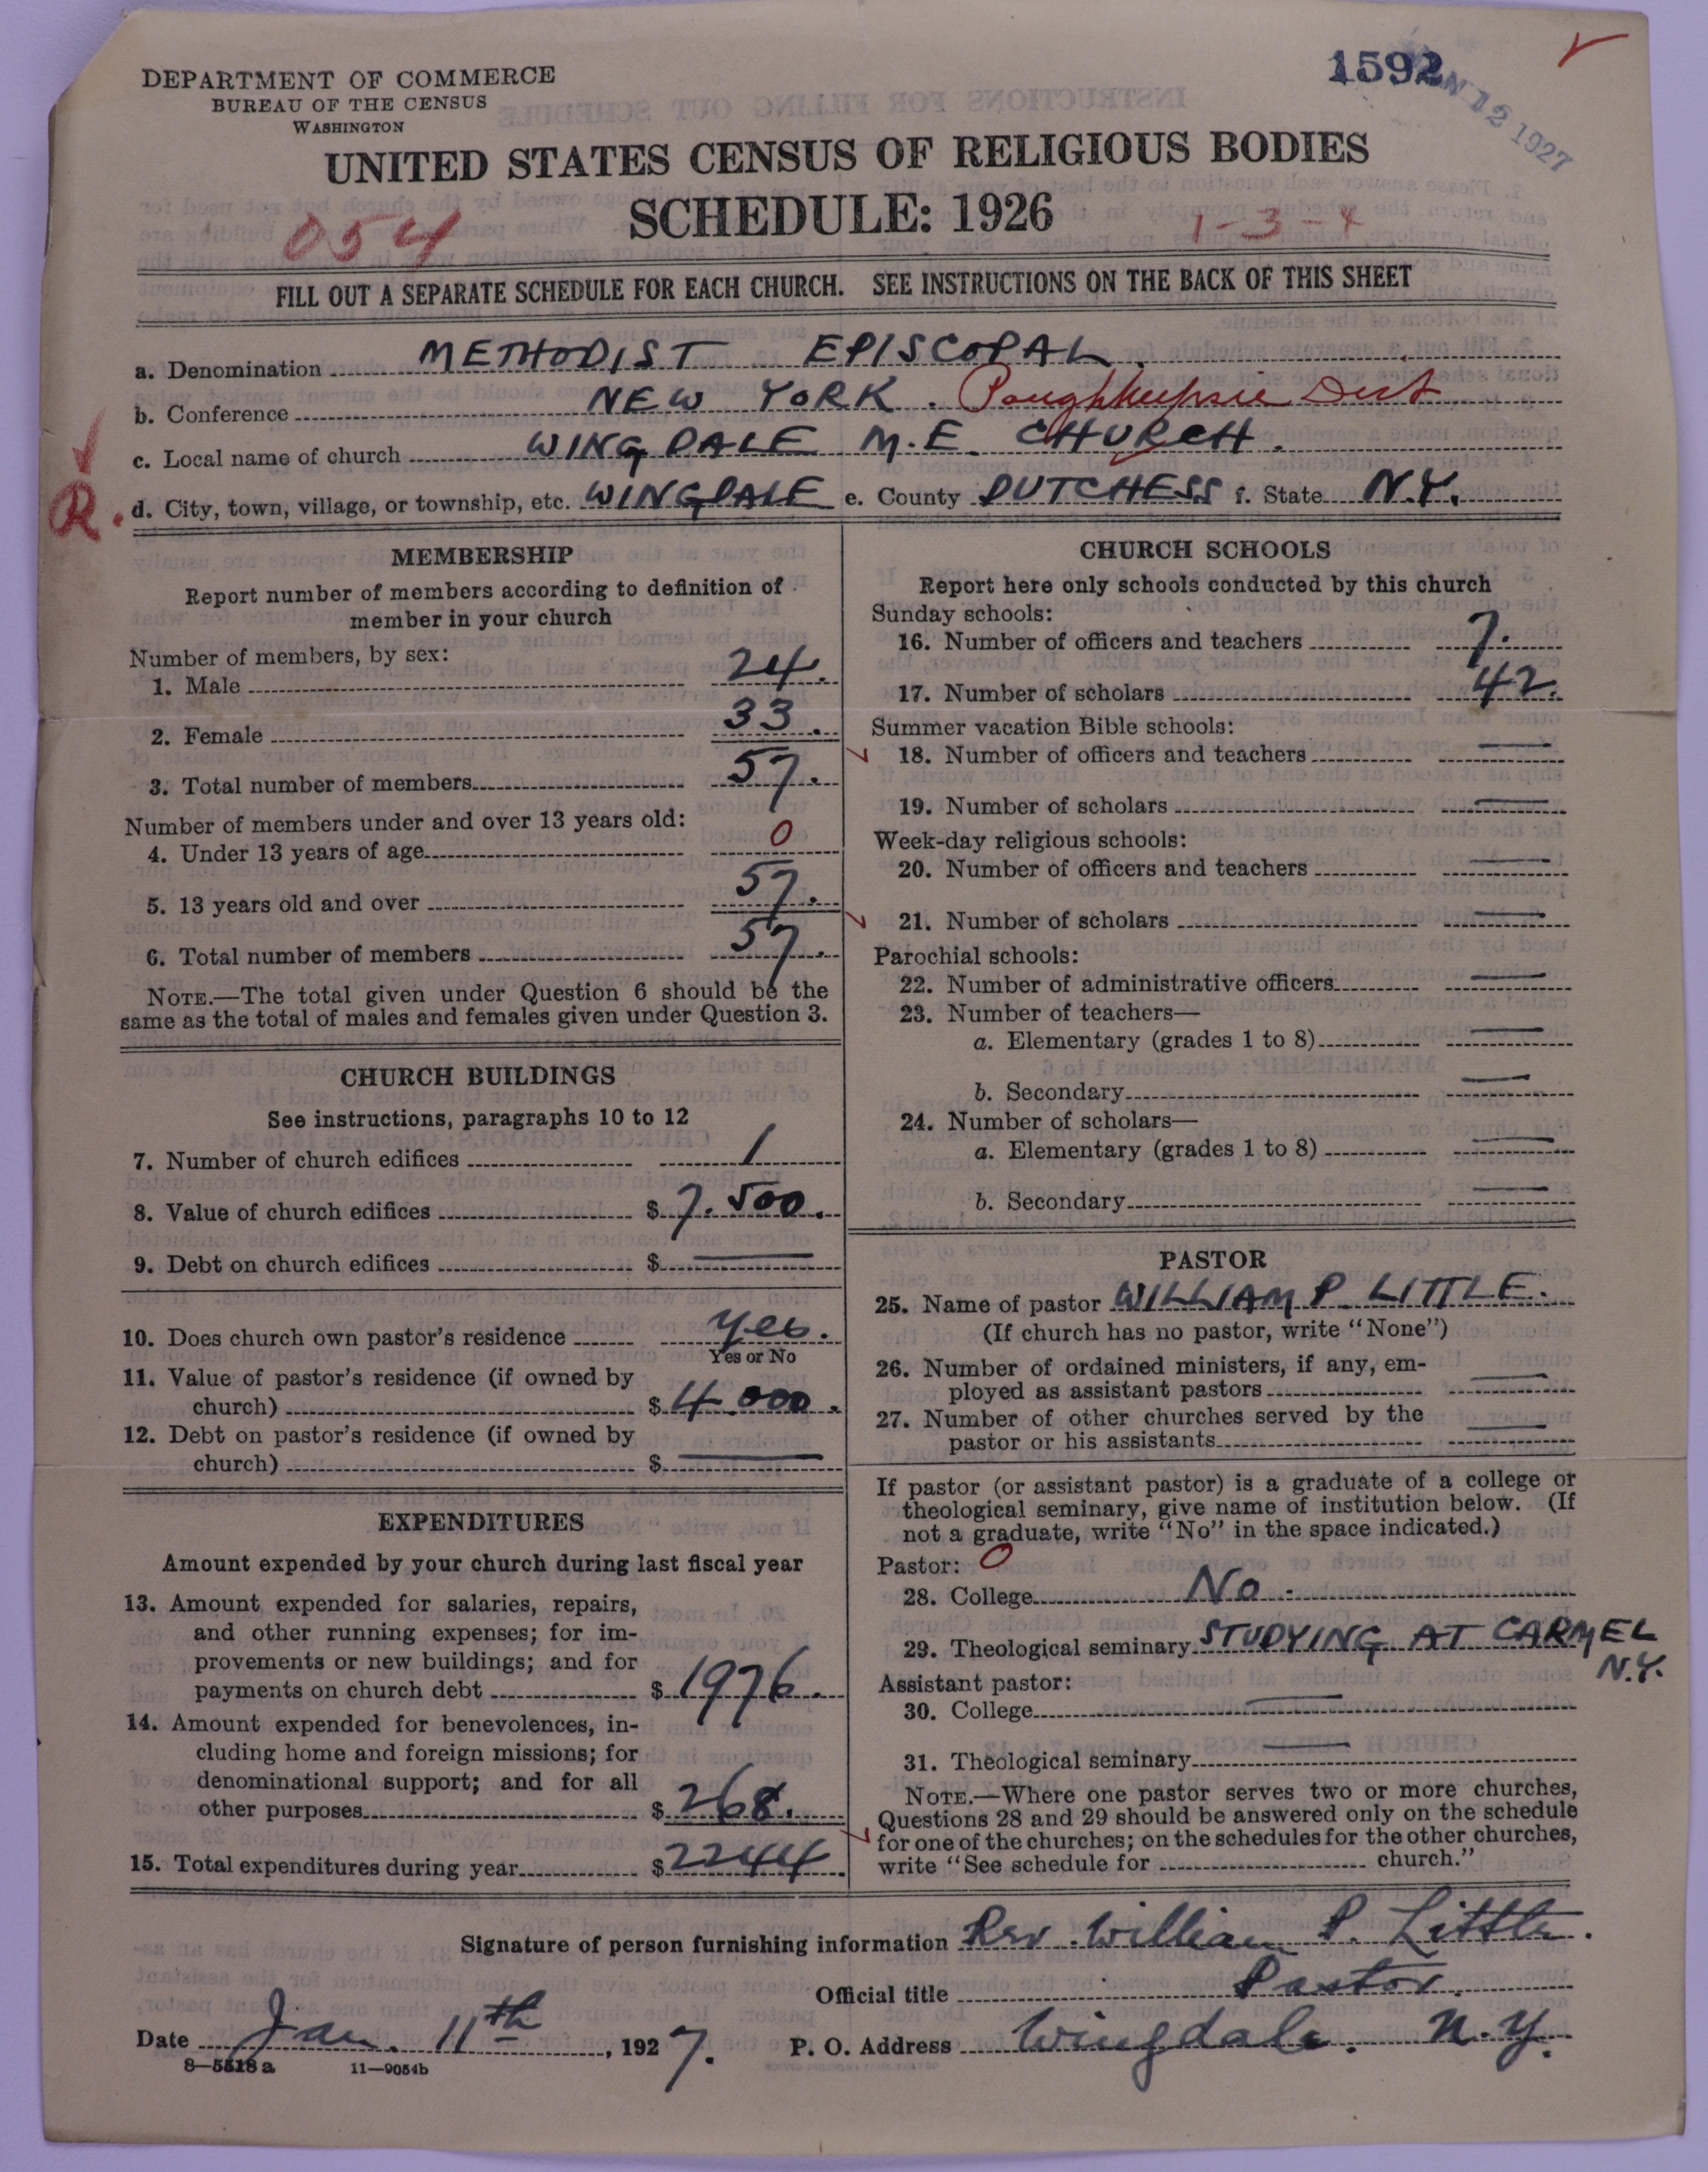 1592
JAN 12 1927
DEPARTMENT OF COMMERCE
BUREAU OF THE CENSUS
WASHINGTON
UNITED STATES CENSUS OF RELIGIOUS BODIES
SCHEDULE: 1926
054
1-3-4
FILL OUT A SEPARATE SCHEDULE FOR EACH CHURCH. SEE INSTRUCTIONS ON THE BACK OF THIS SHEET
a. Denomination METHODIST EPISCOPAL.
b. Conference NEW YORK. Poughkeepsie Dist
c. Local name of church WINGDALE M.E. CHURCH.
R. d. City, town, village, or township, etc. WINGDALE e. County DUTCHESS f. State N.Y.
MEMBERSHIP
Report number of members according to definition of
member in your church
Number of members, by sex:
1. Male 24.
2. Female 33.
3. Total number of members 57.
Number of members under and over 13 years old:
4. Under 13 years of age 0
5. 13 years old and over 57.
6. Total number of members 57.
NOTE.—The total given under Question 6 should be the
same as the total of males and females given under Question 3.
CHURCH BUILDINGS
See instructions, paragraphs 10 to 12
7. Number of church edifices 1
8. Value of church edifices $ 7.500.
9. Debt on church edifices $ —
10. Does church own pastor's residence yes.
Yes or No
11. Value of pastor's residence (if owned by
church) $ 4.000.
12. Debt on pastor's residence (if owned by
church) $ —
EXPENDITURES
Amount expended by your church during last fiscal year
13. Amount expended for salaries, repairs,
and other running expenses; for im-
provements or new buildings; and for
payments on church debt $ 1976.
14. Amount expended for benevolences, in-
cluding home and foreign missions; for
denominational support; and for all
other purposes $ 268.
15. Total expenditures during year $ 2244.
CHURCH SCHOOLS
Report here only schools conducted by this church
Sunday schools:
16. Number of officers and teachers 7.
17. Number of scholars 42.
Summer vacation Bible schools:
18. Number of officers and teachers —
19. Number of scholars —
Week-day religious schools:
20. Number of officers and teachers —
21. Number of scholars —
Parochial schools:
22. Number of administrative officers —
23. Number of teachers—
a. Elementary (grades 1 to 8) —
b. Secondary —
24. Number of scholars—
a. Elementary (grades 1 to 8) —
b. Secondary —
PASTOR
25. Name of pastor WILLIAM P. LITTLE.
(If church has no pastor, write "None")
26. Number of ordained ministers, if any, em-
ployed as assistant pastors —
27. Number of other churches served by the
pastor or his assistants —
If pastor (or assistant pastor) is a graduate of a college or
theological seminary, give name of institution below. (If
not a graduate, write "No" in the space indicated.)
Pastor: 0
28. College No.
29. Theological seminary STUDYING AT CARMEL
N.Y.
Assistant pastor:
30. College —
31. Theological seminary —
NOTE.—Where one pastor serves two or more churches,
Questions 28 and 29 should be answered only on the schedule
for one of the churches; on the schedules for the other churches,
write "See schedule for church."
Signature of person furnishing information Rev. William P. Little.
Official title Pastor.
Date Jan. 11th, 1927. P. O. Address Wingdale. N.Y.
8—5518 a 11—9054b